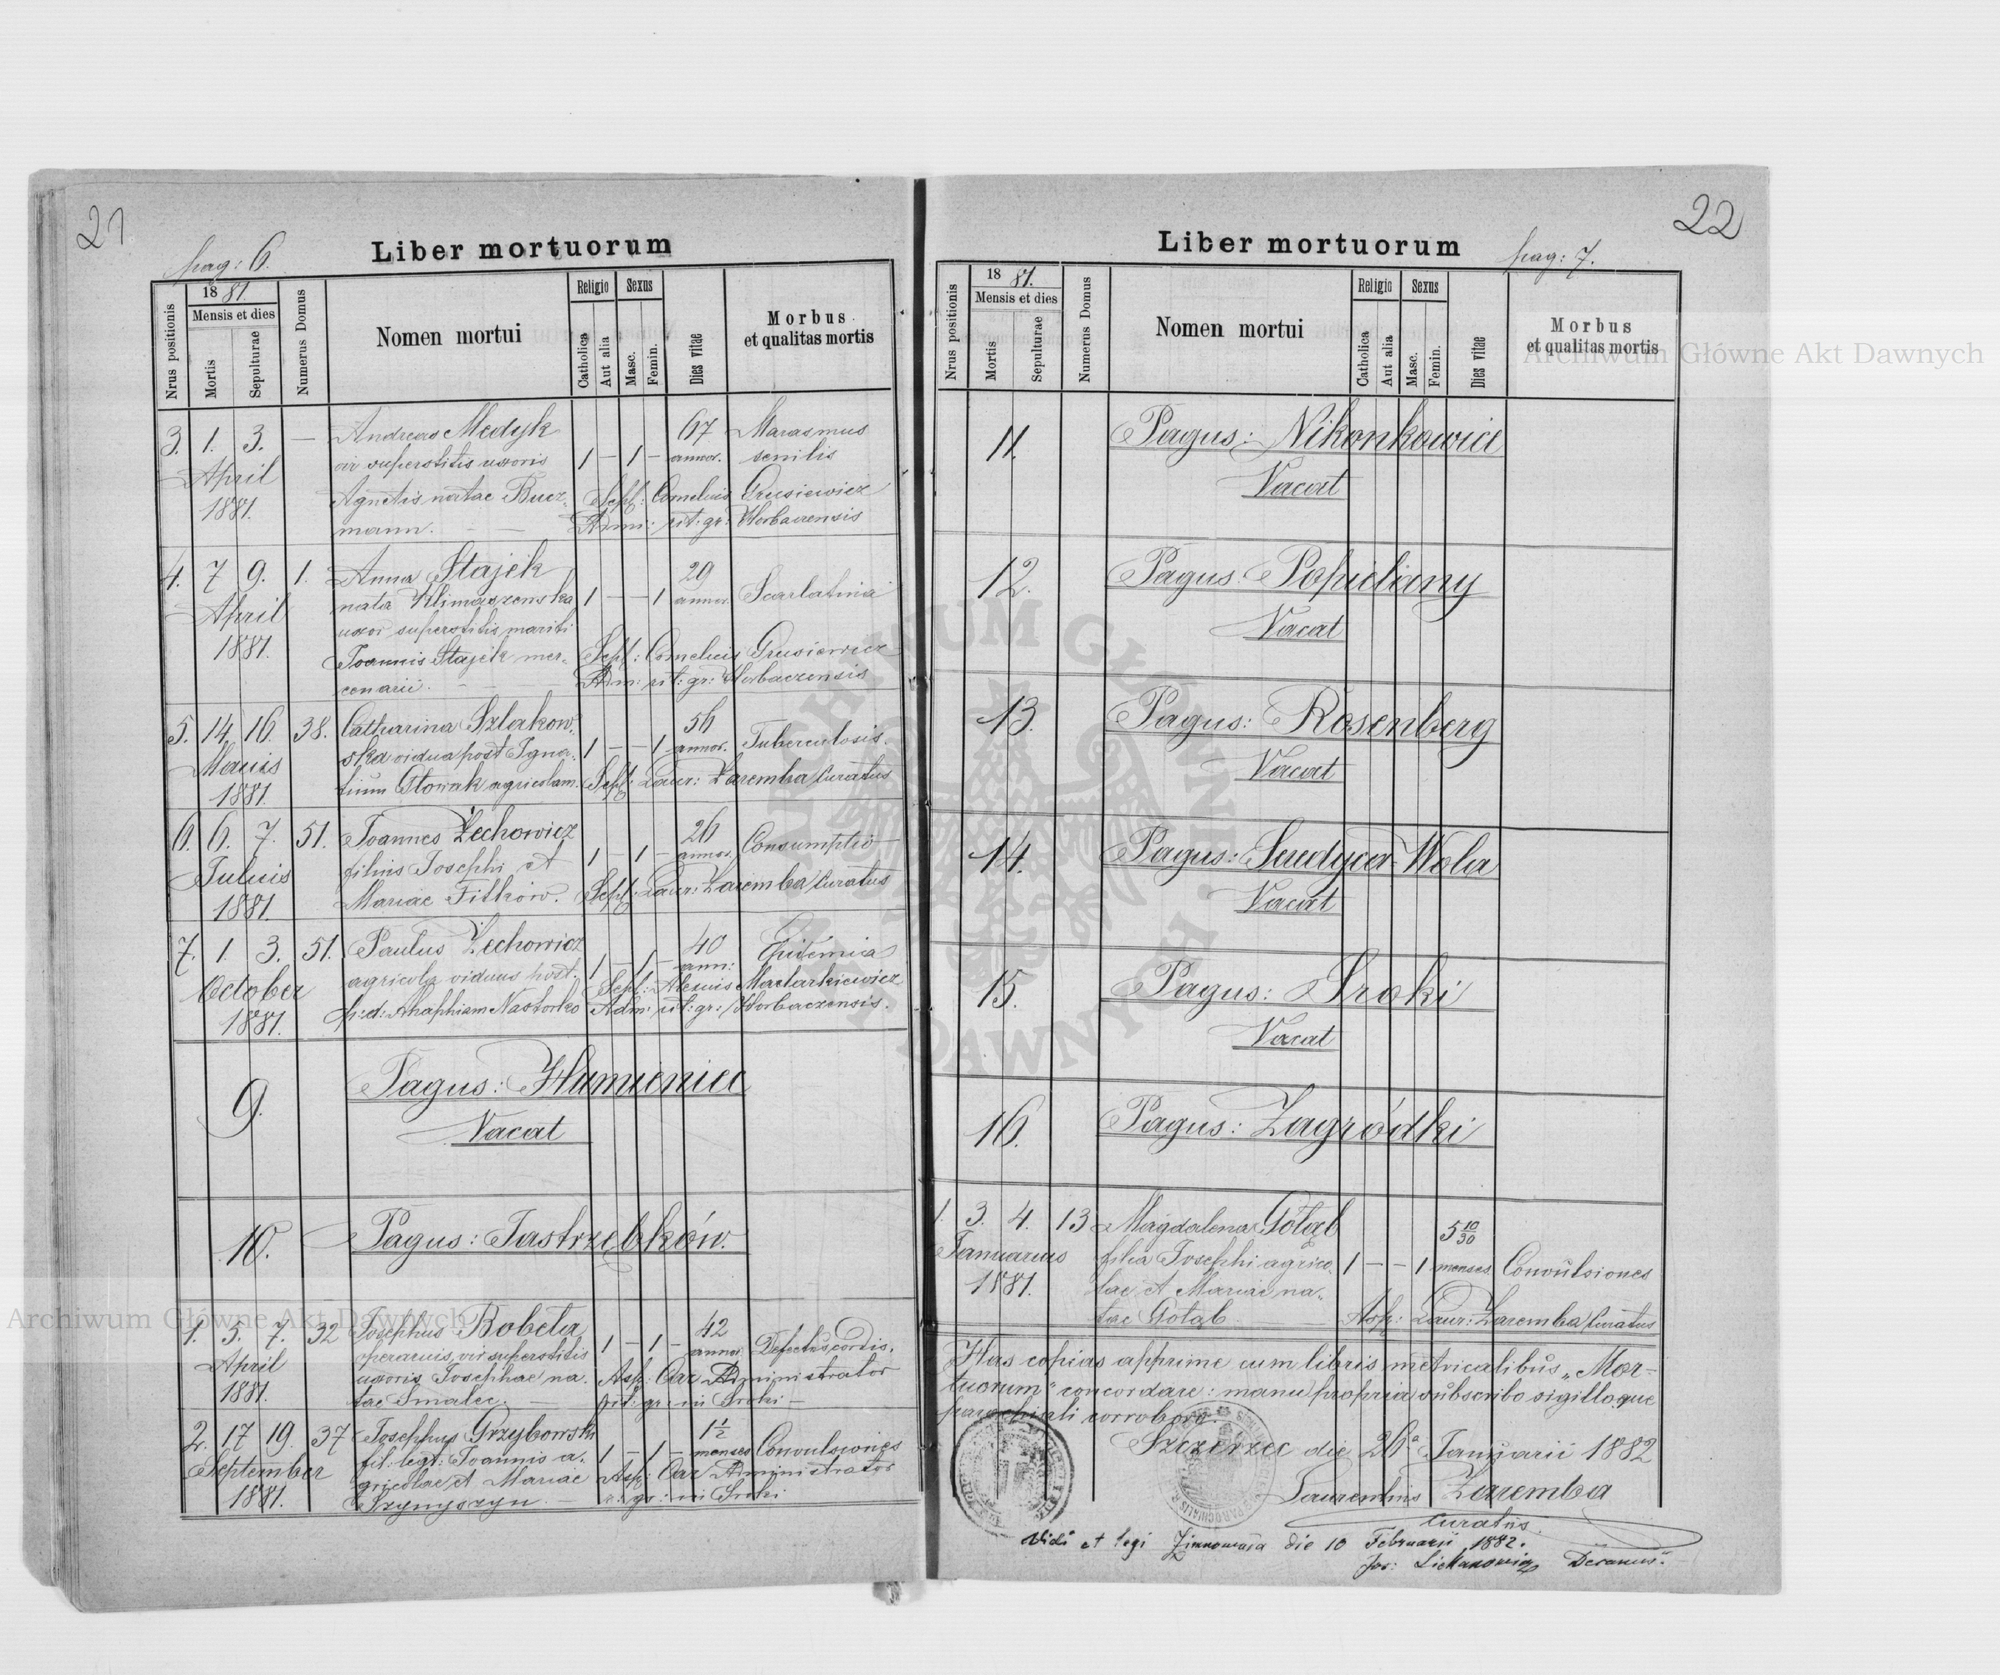 21
pag: 6.
Liber mortuorum
Nrus positionis
1881.
Mensis et dies
Mortis
Sepulturae
Numerus Domus
Nomen mortui
Religio
Catholica
Aut alia
Sexus
Masc.
Femin.
Dies vitae
Morbus
et qualitas mortis
3. 1. 3. — Andreas Medyk 67 Marasmus
vir superstitis uxoris 1 — 1 — annor. senilis
April Agnetis natae Bucz- Sepl: Cornelius Grusiewicz
1881. mann. — — Adm: rit: gr: Horbaczensis
4. 7 9. 1. Anna Stajek 29
nata Klimaszewska 1 — — 1 annor. Scarlatina
April uxor superstitis mariti
1881. Joannis Stajek mer- Sepl: Cornelius Grusiewicz
cenarii. — — Adm: rit: gr: Horbaczensis
5. 14. 16. 38. Catharina Szlakow- 56
ska vidua post Igna- 1 — — 1 annor. Tuberculosis.
Maius
1881. tium Głowak agricolam. Sepl: Laur: Zaremba Curatus
6. 6. 7. 51. Joannes Zechowicz 26
filius Josephi et 1 — 1 — annor. Consumptio
Julius
1881. Mariae Fitków. Sepl: Laur: Zaremba Curatus
7. 1. 3. 51. Paulus Zechowicz 40 Epidemia
agricola viduus post 1 — 1 — ann:
October Sepl: Alexius Maclarkiewicz
1881. p: d: Ahaphiam Nastorko Adm: rit: gr: Horbaczensis.
9. Pagus: Humieniec
Vacat
10. Pagus: Jastrzębków.
1. 5. 7. 32 Josephus Bobela 42
operarius, vir superstitis 1 — 1 — annor. Defectus cordis.
April uxoris Josephae na- Asp: Car Administrator
1881. tae Smalec. — rit: gr: in Sroki —
2. 17 19. 37 Josephus Grzybowski 1½
fil: legt: Joannis a- 1 — 1 — menses Convulsiones
September gricolae et Mariae Asp: Car Administrator
1881. Szymyszyn. — r. gr: in Sroki
22
Liber mortuorum
pag: 7.
Nrus positionis
1881.
Mensis et dies
Mortis
Sepulturae
Numerus Domus
Nomen mortui
Religio
Catholica
Aut alia
Sexus
Masc.
Femin.
Dies vitae
Morbus
et qualitas mortis
11. Pagus: Nikonkowice
Vacat
12. Pagus: Popieliany
Vacat
13. Pagus: Rosenberg
Vacat
14. Pagus: Serdyca-Wola
Vacat
15. Pagus: Sroki
Vacat
16. Pagus: Zagródki
1. 3. 4. 13 Magdalena Gołąb 5 10/30
Januarius filia Josephi agrico- 1 — — 1 menses Convulsiones
1881. lae et Mariae na-
tae Gołąb. — Asp: Laur: Zaremba Curatus
Has copias apprime cum libris metricalibus „Mor-
tuorum" concordare: manu propria subscribo sigilloque
parochiali corroboro.
Szczerzec die 26a Januarii 1882
Laurentius Zaremba
curatus.
Vidi et legi Zimnowoda die 10 Februarii 1882.
Jos: Decanus.
Archiwum Główne Akt Dawnych
Archiwum Główne Akt Dawnych
ARCHIWUM GŁÓWNE AKT DAWNYCH